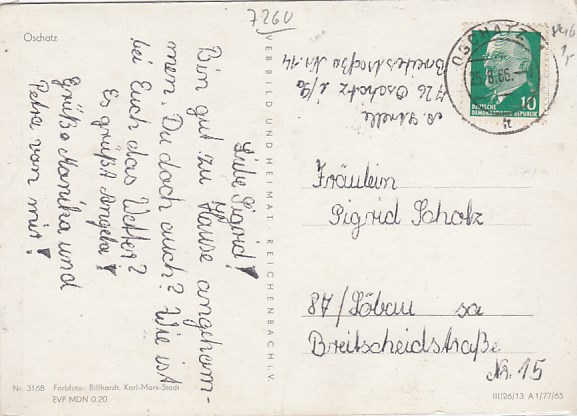 7260
Oschatz
Liebe Sigrid!
Bin gut zu Hause angekom-
men. Du doch auch? Wie ist
bei Euch das Wetter?
Es grüßt Angela!
Grüße Monika und
Petra von mir!
VEB BILD UND HEIMAT · REICHENBACH I. V.
726 Oschatz i/Sa
Breitestraße Nr. 14
OSCHATZ
DEUTSCHE
DEMOKRATISCHE REPUBLIK
10
Fräulein
Sigrid Scholz
87/Löbau sa
Breitscheidstraße
Nr. 15
Nr. 3168 Farbfoto: Billhardt, Karl-Marx-Stadt
EVP MDN 0.20
III/26/13 A 1/77/65